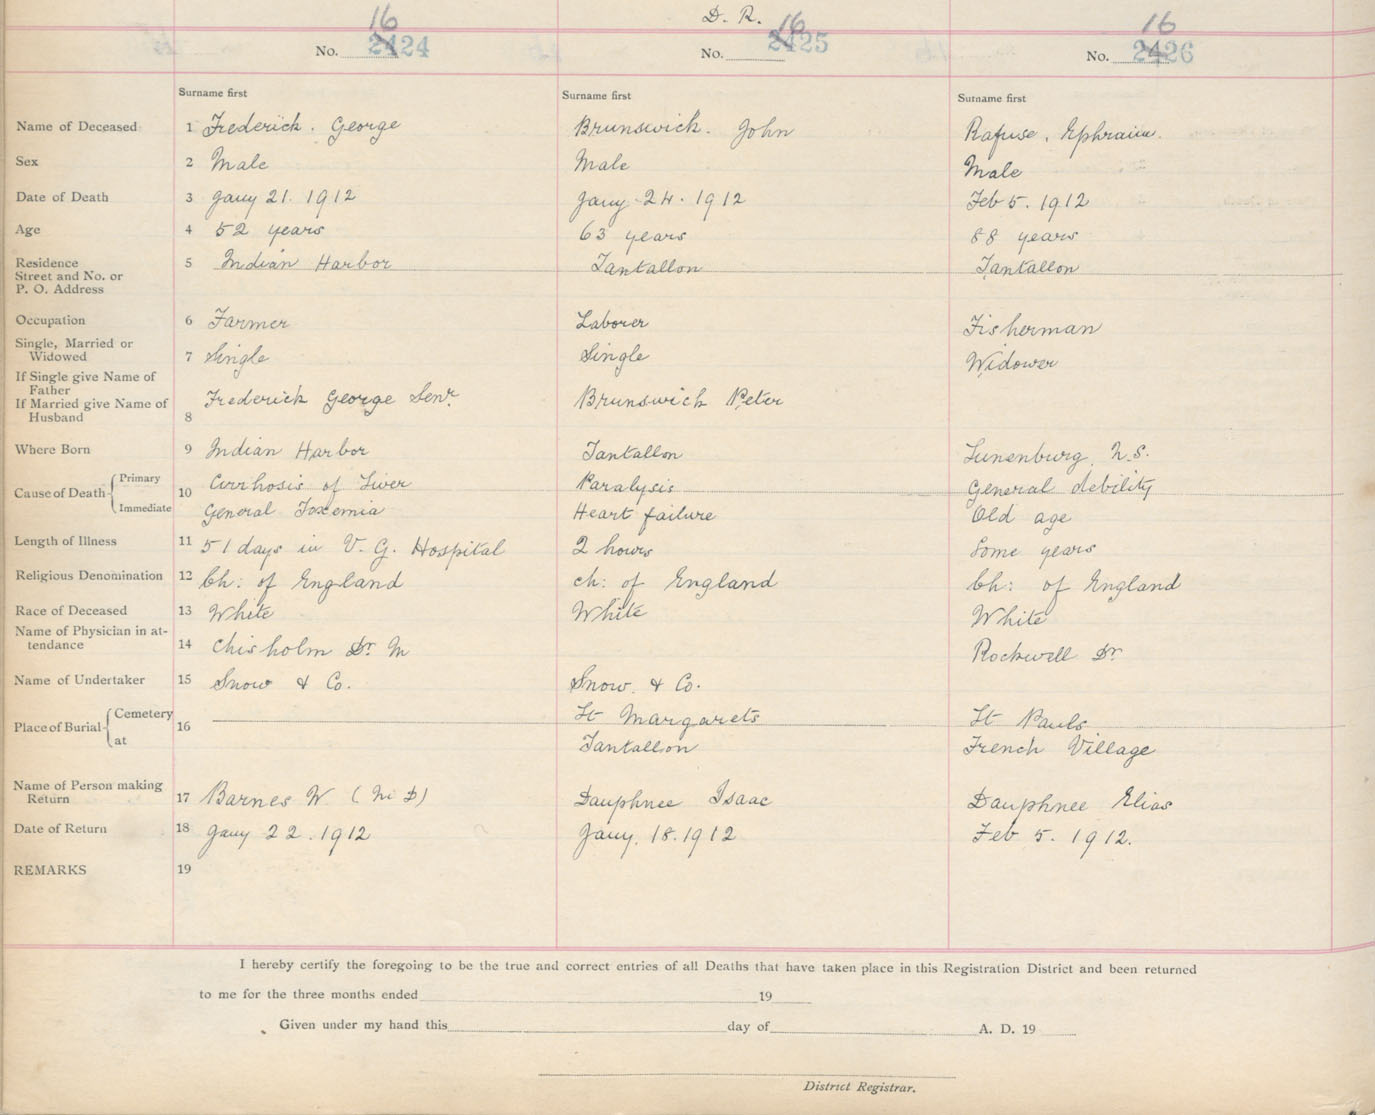 D. R.
16 16 16
No. 2424 No. 2425 No. 2426
Surname first Surname first Surname first
Name of Deceased 1 Frederick. George Brunswick. John Rafuse, Ephraim.
Sex 2 Male Male Male
Date of Death 3 Jany 21. 1912 Jany 24. 1912 Feb 5. 1912
Age 4 52 years 63 years 88 years
Residence 5 Indian Harbor Tantallon Tantallon
Street and No. or
P. O. Address
Occupation 6 Farmer Laborer Fisherman
Single, Married or
Widowed 7 Single Single Widower
If Single give Name of
Father
If Married give Name of Frederick George Senr. Brunswick Peter
Husband 8
Where Born 9 Indian Harbor Tantallon Lunenburg, N.S.
Cause of Death Primary 10 Cirrhosis of Liver Paralysis General debility
Immediate General Toxemia Heart failure Old age
Length of Illness 11 51 days in V. G. Hospital 2 hours Some years
Religious Denomination 12 Ch: of England Ch: of England Ch: of England
Race of Deceased 13 White White White
Name of Physician in at-
tendance 14 Chisholm Dr. M Rockwell Dr
Name of Undertaker 15 Snow & Co. Snow. & Co.
Place of Burial Cemetery 16 St Margarets St Pauls
at Tantallon French Village
Name of Person making
Return 17 Barnes W (M D) Dauphnee Isaac Dauphnee Elias
Date of Return 18 Jany 22. 1912 Jany. 18. 1912 Feb 5. 1912.
REMARKS 19
I hereby certify the foregoing to be the true and correct entries of all Deaths that have taken place in this Registration District and been returned
to me for the three months ended 19
Given under my hand this day of A. D. 19
District Registrar.